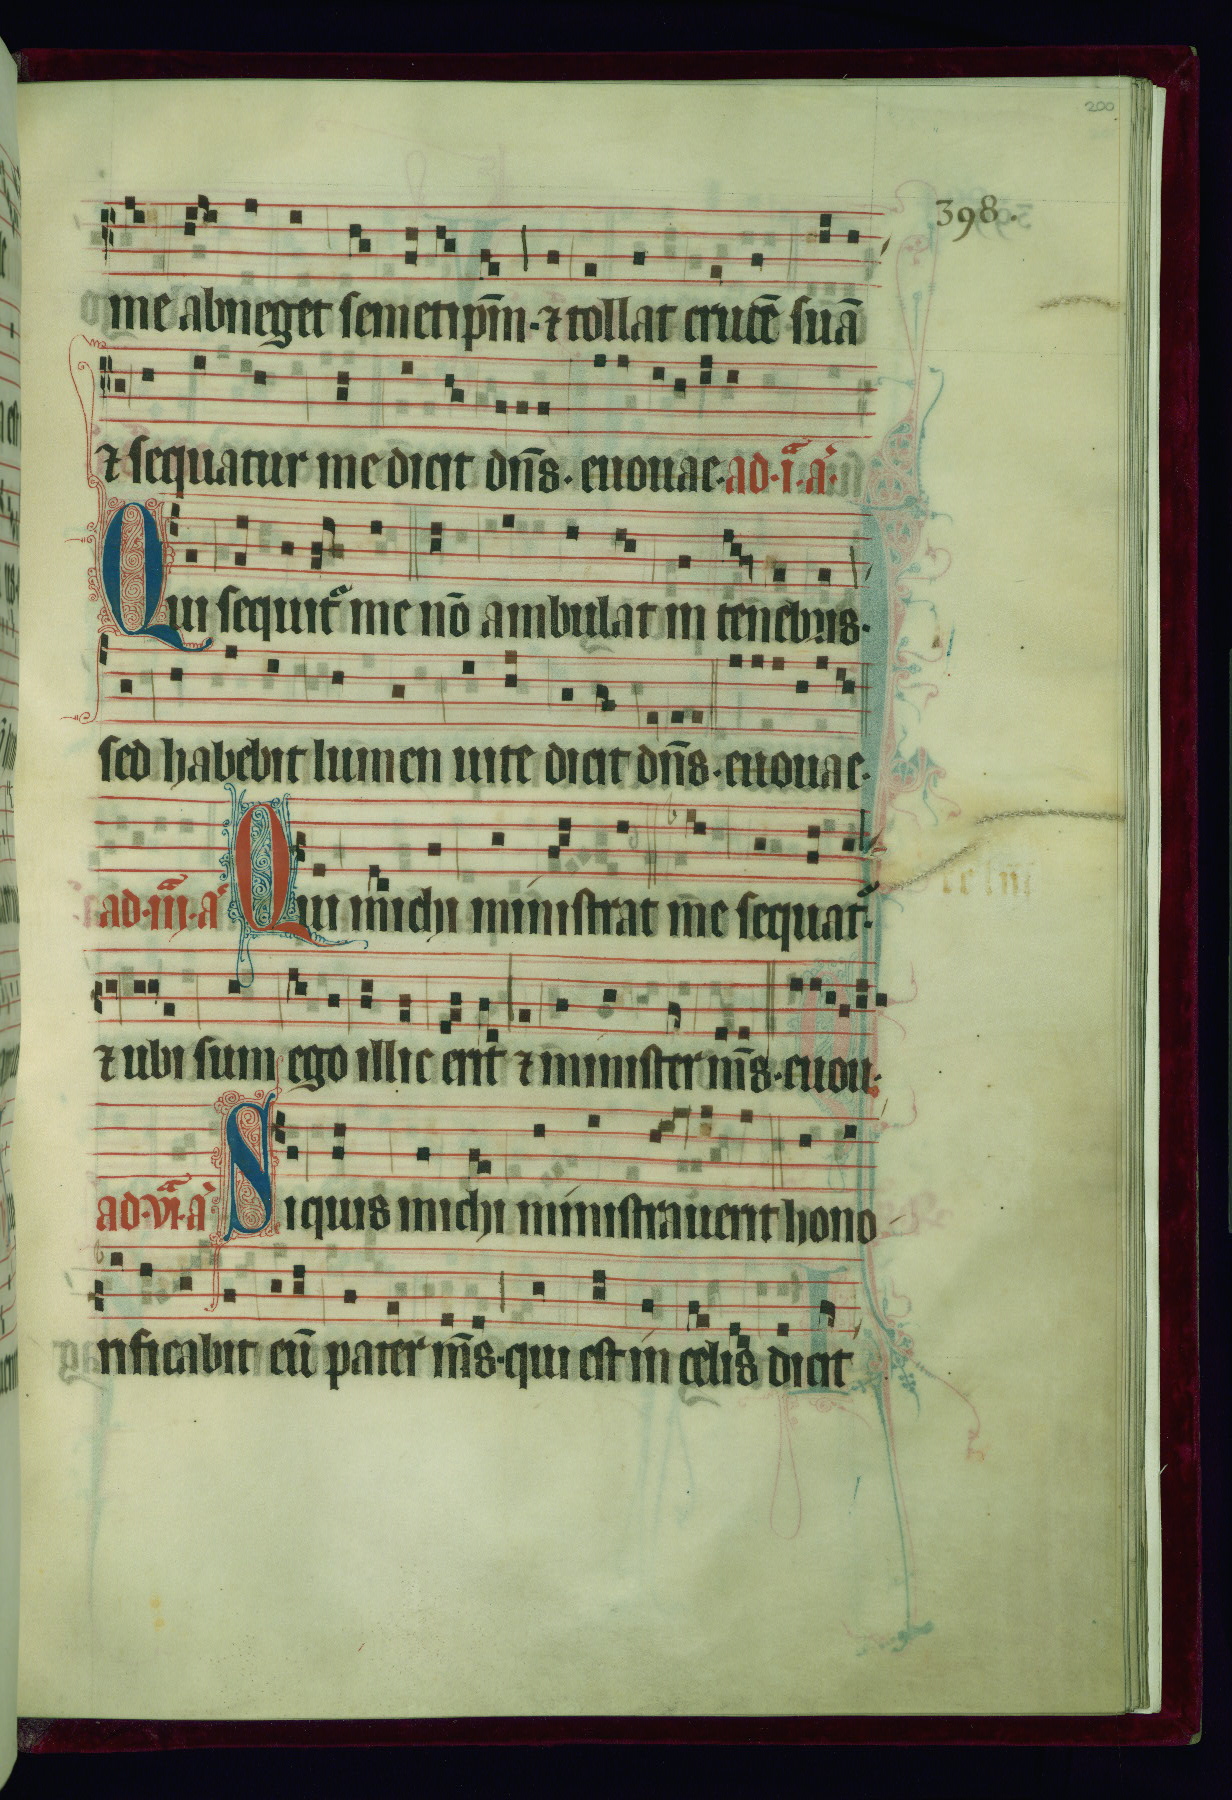 200
398.
me abneget semetip̄m. ⁊ tollat crucē suā
⁊ sequatur me dicit dn̄s. euouae. ad .i. a.
Qui sequit᷑ me nō ambulat in tenebris.
sed habebit lumen uite dicit dn̄s. euouae.
ad .iii. a Qui michi ministrat me sequat᷑.
⁊ ubi sum ego illic erit ⁊ minister m̄s. euou.
ad .vi. a Siquis michi ministrauerit hono
rificabit eū pater m̄s. qui est in celis dicit